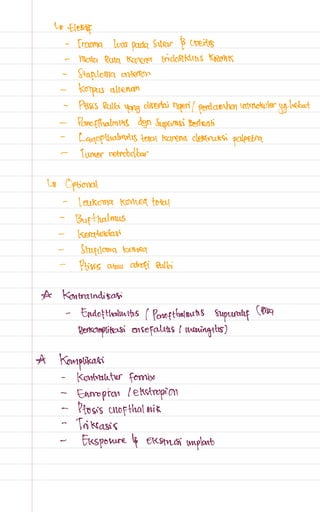 ↳ Elektif
- Trauma luas pada Sklera & Uveitis
- Mata Buta karena iridosiklitis kronis
- Stafiloma anterior
- Korpus alienum
- Ptisis Bulbi yang disertai nyeri / perdarahan intraokular yg hebat
- Panofthalmitis dgn Supurasi
- Lagophthalmus total karena destruksi palpebra
- Tumor retrobulbar
↳ Optional
- leukoma kornea total
- Bufthalmus
- keratektasi
- Stafiloma kornea
- Ptisis atau atrofi Bulbi
☆ Kontraindikasi
- Endofthalmitis / Panofthalmitis supuratif
Berkomplikasi ensefalitis / meningitis)
☆ Komplikasi
- Kontraktur fornix
- Entropion / ekstropion
- Ptosis enofthalmik
- Trikiasis
- Eksposure & ekstrusi implant